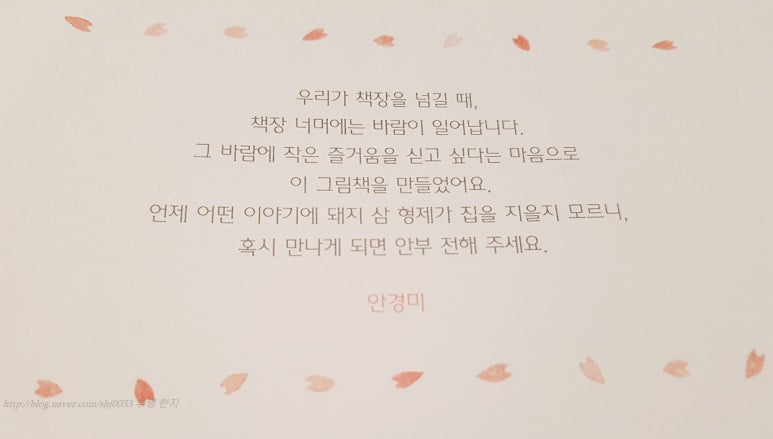 우리가 책장을 넘길 때,
책장 너머에는 바람이 일어납니다.
그 바람에 작은 즐거움을 싣고 싶다는 마음으로
이 그림책을 만들었어요.
언제 어떤 이야기에 돼지 삼 형제가 집을 지을지 모르니,
혹시 만나게 되면 안부 전해 주세요.
안경미
http://blog.naver.com/shj0033